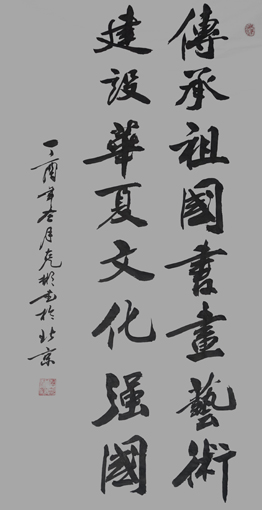 傳承祖國書畫藝術
建設華夏文化强國
丁酉年冬月堯彬書於北京